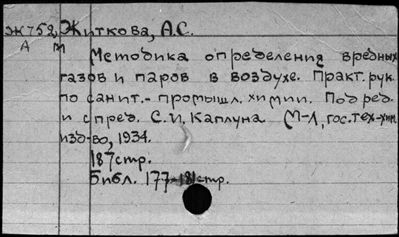 Ж752 Житкова, А.С.
А М
Методика определения вредных
газов и паров в воздухе. Практ. рук.
по санит.- промышл. химии. Под ред.
и с пред. С.И. Каплуна М-Л, гос. тех-хим.
изд-во, 1934.
187 стр.
Библ. 177-181 стр.